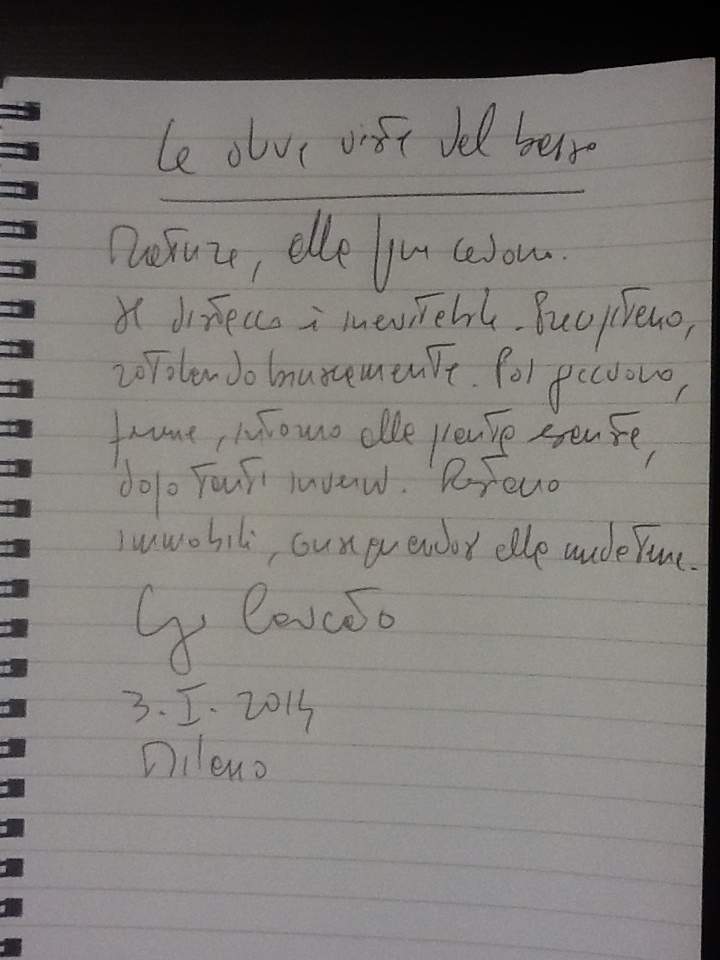 Le olive viste dal basso
Mature, alla fine cedono.
Il distacco è inevitabile. Precipitano,
rotolando bruscamente. Poi giacciono,
ferme, intorno alla pianta esausta,
dopo tanti inverni. Restano
immobili, consegnandosi alla nudità
3.I.2014
Milano